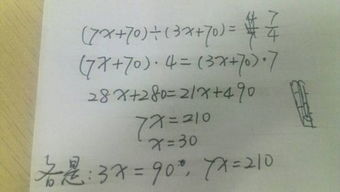 (7x+70)÷(3x+70)=7/4
(7x+70)·4=(3x+70)·7
28x+280=21x+490
7x=210
x=30
答是:3x=90°,7x=210